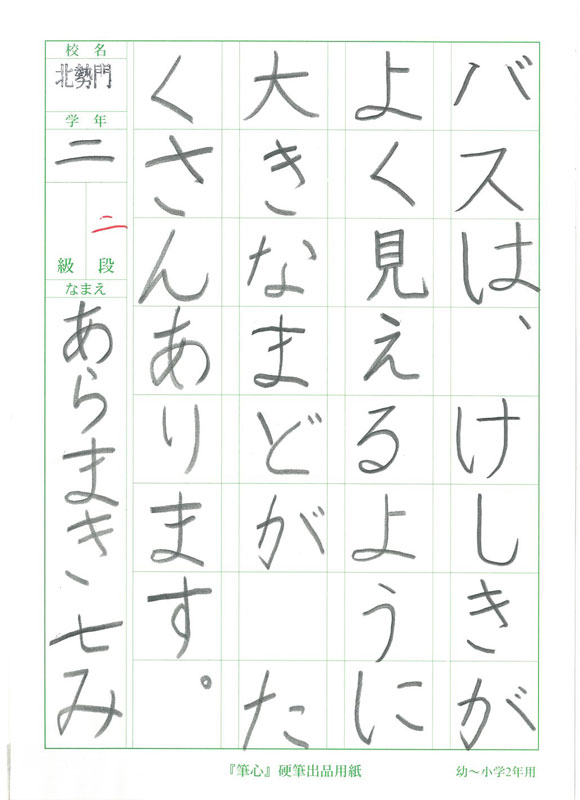 バスは、けしきが
よく見えるように
大きなまどが た
くさんあります。
校名
北勢門
学年
二
二
級 段
なまえ
あらまき七み
『筆心』硬筆出品用紙
幼〜小学2年用